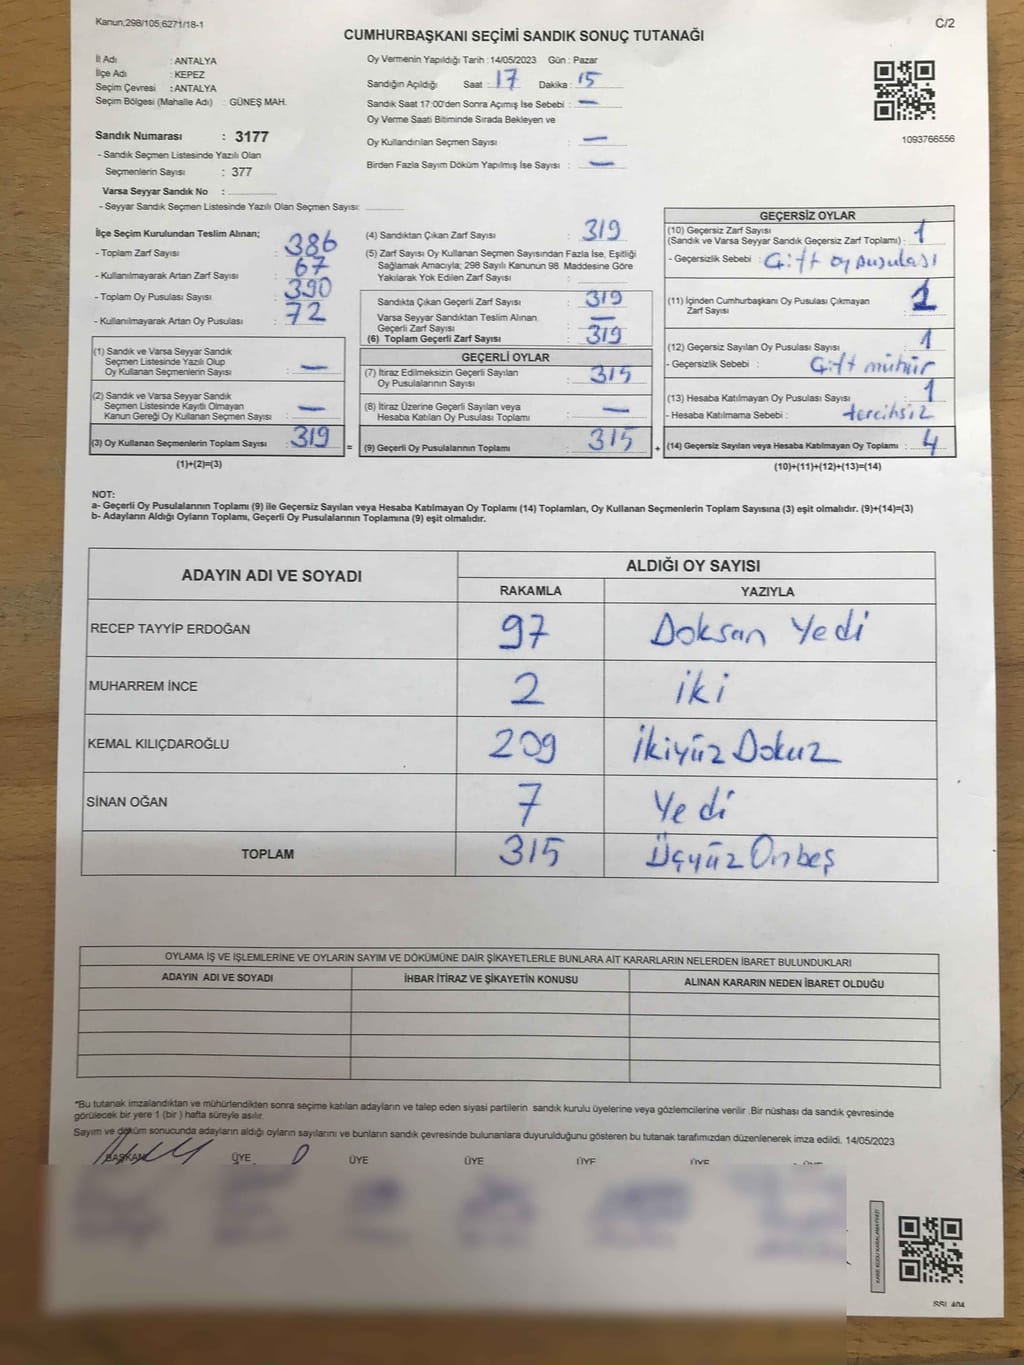 Kanun;298/105;6271/18-1
C/2
CUMHURBAŞKANI SEÇİMİ SANDIK SONUÇ TUTANAĞI
İl Adı : ANTALYA
İlçe Adı : KEPEZ
Seçim Çevresi : ANTALYA
Seçim Bölgesi (Mahalle Adı) : GÜNEŞ MAH.
Sandık Numarası : 3177
- Sandık Seçmen Listesinde Yazılı Olan
Seçmenlerin Sayısı : 377
Varsa Seyyar Sandık No :
- Seyyar Sandık Seçmen Listesinde Yazılı Olan Seçmen Sayısı:
Oy Vermenin Yapıldığı Tarih : 14/05/2023 Gün : Pazar
Sandığın Açıldığı Saat : 17 Dakika : 15
Sandık Saat 17:00'den Sonra Açımış İse Sebebi : —
Oy Verme Saati Bitiminde Sırada Bekleyen ve
Oy Kullandırılan Seçmen Sayısı : —
Birden Fazla Sayım Döküm Yapılmış İse Sayısı : —
1093766556
İlçe Seçim Kurulundan Teslim Alınan;
- Toplam Zarf Sayısı : 386
- Kullanılmayarak Artan Zarf Sayısı : 67
- Toplam Oy Pusulası Sayısı : 390
- Kullanılmayarak Artan Oy Pusulası : 72
(1) Sandık ve Varsa Seyyar Sandık
Seçmen Listesinde Yazılı Olup
Oy Kullanan Seçmenlerin Sayısı : —
(2) Sandık ve Varsa Seyyar Sandık
Seçmen Listesinde Kayıtlı Olmayan
Kanun Gereği Oy Kullanan Seçmen Sayısı : —
(3) Oy Kullanan Seçmenlerin Toplam Sayısı : 319 =
(1)+(2)=(3)
(4) Sandıktan Çıkan Zarf Sayısı : 319
(5) Zarf Sayısı Oy Kullanan Seçmen Sayısından Fazla İse, Eşitliği
Sağlamak Amacıyla; 298 Sayılı Kanunun 98. Maddesine Göre
Yakılarak Yok Edilen Zarf Sayısı :
Sandıkta Çıkan Geçerli Zarf Sayısı : 319
Varsa Seyyar Sandıktan Teslim Alınan
Geçerli Zarf Sayısı : —
(6) Toplam Geçerli Zarf Sayısı : 319
GEÇERLİ OYLAR
(7) İtiraz Edilmeksizin Geçerli Sayılan
Oy Pusulalarının Sayısı : 315
(8) İtiraz Üzerine Geçerli Sayılan veya
Hesaba Katılan Oy Pusulası Toplamı : —
(9) Geçerli Oy Pusulalarının Toplamı : 315 +
GEÇERSİZ OYLAR
(10) Geçersiz Zarf Sayısı
(Sandık ve Varsa Seyyar Sandık Geçersiz Zarf Toplamı) : 1
- Geçersizlik Sebebi : Çift oy pusulası
(11) İçinden Cumhurbaşkanı Oy Pusulası Çıkmayan
Zarf Sayısı : 1
(12) Geçersiz Sayılan Oy Pusulası Sayısı : 1
- Geçersizlik Sebebi : Çift mühür
(13) Hesaba Katılmayan Oy Pusulası Sayısı : 1
- Hesaba Katılmama Sebebi : tercihsiz
(14) Geçersiz Sayılan veya Hesaba Katılmayan Oy Toplamı : 4
(10)+(11)+(12)+(13)=(14)
NOT:
a- Geçerli Oy Pusulalarının Toplamı (9) ile Geçersiz Sayılan veya Hesaba Katılmayan Oy Toplamı (14) Toplamları, Oy Kullanan Seçmenlerin Toplam Sayısına (3) eşit olmalıdır. (9)+(14)=(3)
b- Adayların Aldığı Oyların Toplamı, Geçerli Oy Pusulalarının Toplamına (9) eşit olmalıdır.
ADAYIN ADI VE SOYADI ALDIĞI OY SAYISI
RAKAMLA YAZIYLA
RECEP TAYYİP ERDOĞAN 97 Doksan Yedi
MUHARREM İNCE 2 iki
KEMAL KILIÇDAROĞLU 209 İkiyüz Dokuz
SİNAN OĞAN 7 Yedi
TOPLAM 315 Üçyüz Onbeş
OYLAMA İŞ VE İŞLEMLERİNE VE OYLARIN SAYIM VE DÖKÜMÜNE DAİR ŞİKAYETLERLE BUNLARA AİT KARARLARIN NELERDEN İBARET BULUNDUKLARI
ADAYIN ADI VE SOYADI İHBAR İTİRAZ VE ŞİKAYETİN KONUSU ALINAN KARARIN NEDEN İBARET OLDUĞU
*Bu tutanak imzalandıktan ve mühürlendikten sonra seçime katılan adayların ve talep eden siyasi partilerin sandık kurulu üyelerine veya gözlemcilerine verilir .Bir nüshası da sandık çevresinde
görülecek bir yere 1 (bir ) hafta süreyle asılır.
Sayım ve döküm sonucunda adayların aldığı oyların sayılarını ve bunların sandık çevresinde bulunanlara duyurulduğunu gösteren bu tutanak tarafımızdan düzenlenerek imza edildi. 14/05/2023
BAŞKAN ÜYE ÜYE ÜYE ÜYE ÜYE ÜYE